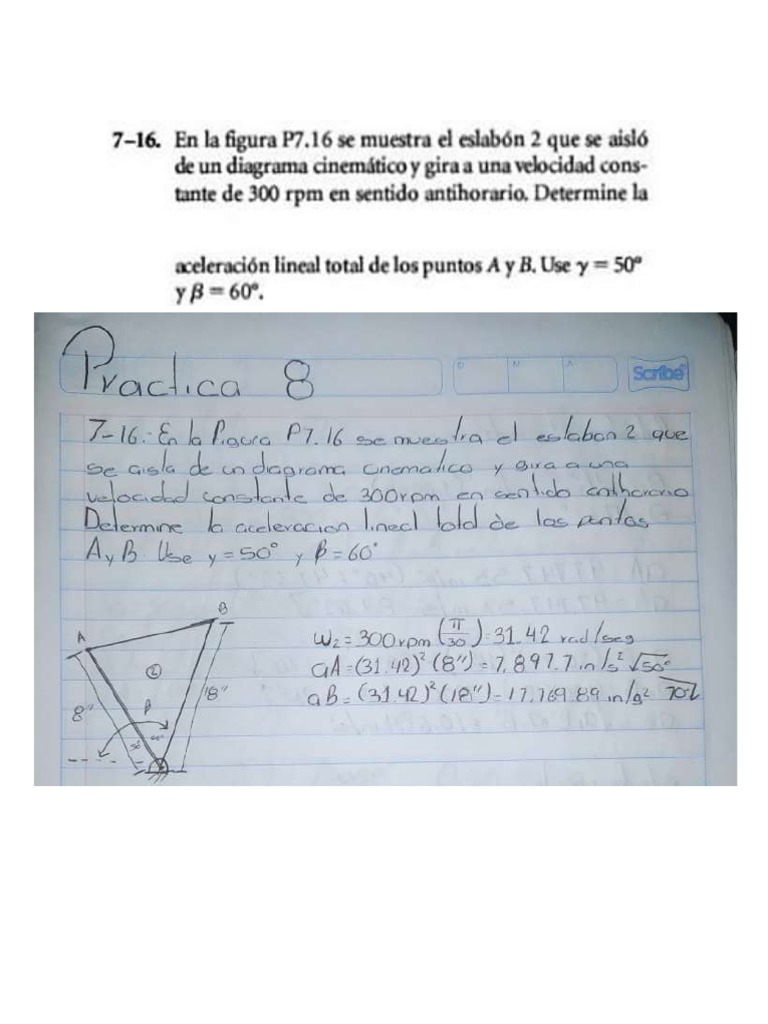 7–16. En la figura P7.16 se muestra el eslabón 2 que se aisló
de un diagrama cinemático y gira a una velocidad cons-
tante de 300 rpm en sentido antihorario. Determine la
aceleración lineal total de los puntos A y B. Use γ = 50°
y β = 60°.
Practica 8
D M A
Scribe
7-16.- En la Figura P7.16 se muestra el eslabon 2 que
se aisla de un diagrama cinematico y gira a una
velocidad constante de 300rpm en sentido antihorario
Determine la aceleracion lineal total de los puntos
A y B. Use y = 50° y β = 60°
B
A
②
8"
18"
β
ω2 = 300rpm (π/30) = 31.42 rad/seg
aA = (31.42)² (8") = 7,897.7 in/s² √50°
aB = (31.42)² (18") = 17,769.89 in/s² 70°